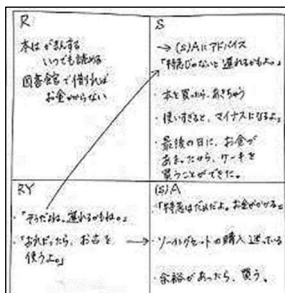 R
本は がまんする
いつでも読める
図書館で借りれば
お金かからない
S
→ (S)Aにアドバイス
「特急じゃないと遅れるかもよ。」
・本を買ったら、あきちゃう
・使いすぎると、マイナスになるよ。
・最後の日に、お金が
あまったから、ケーキを
買うことができた。
RY
・「そうだよね。遅れるかもね。」
・「おれだったら、お古を
使うよ。」
(S)A
「特急はだめだよ。お金がかかる。」
→ ソーイングセットの購入 迷っている
・余裕があったら、買う。